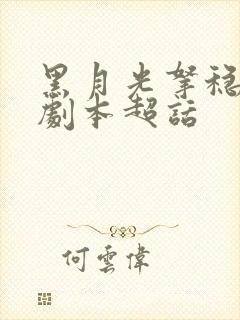 黑月光拏稳
劇本超話
何雲偉